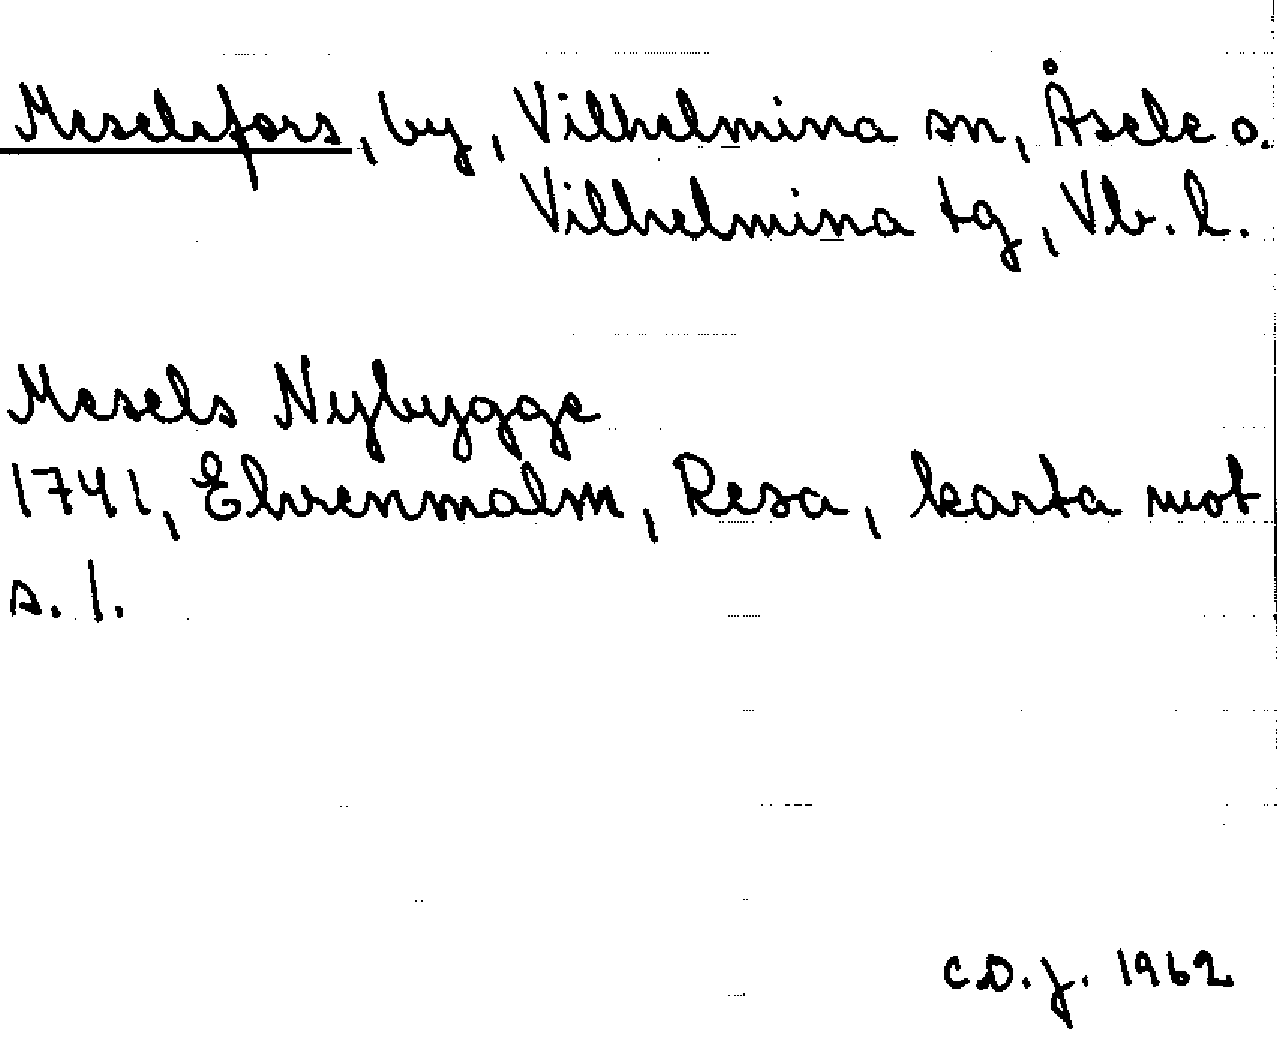 Meselefors, by, Vilhelmina sn, Åsele o.
Vilhelmina tg, Vb. l.
Mesels Nybygge
1741, Ehrenmalm, Resa, karta mot
s. 1.
C.O.J. 1962